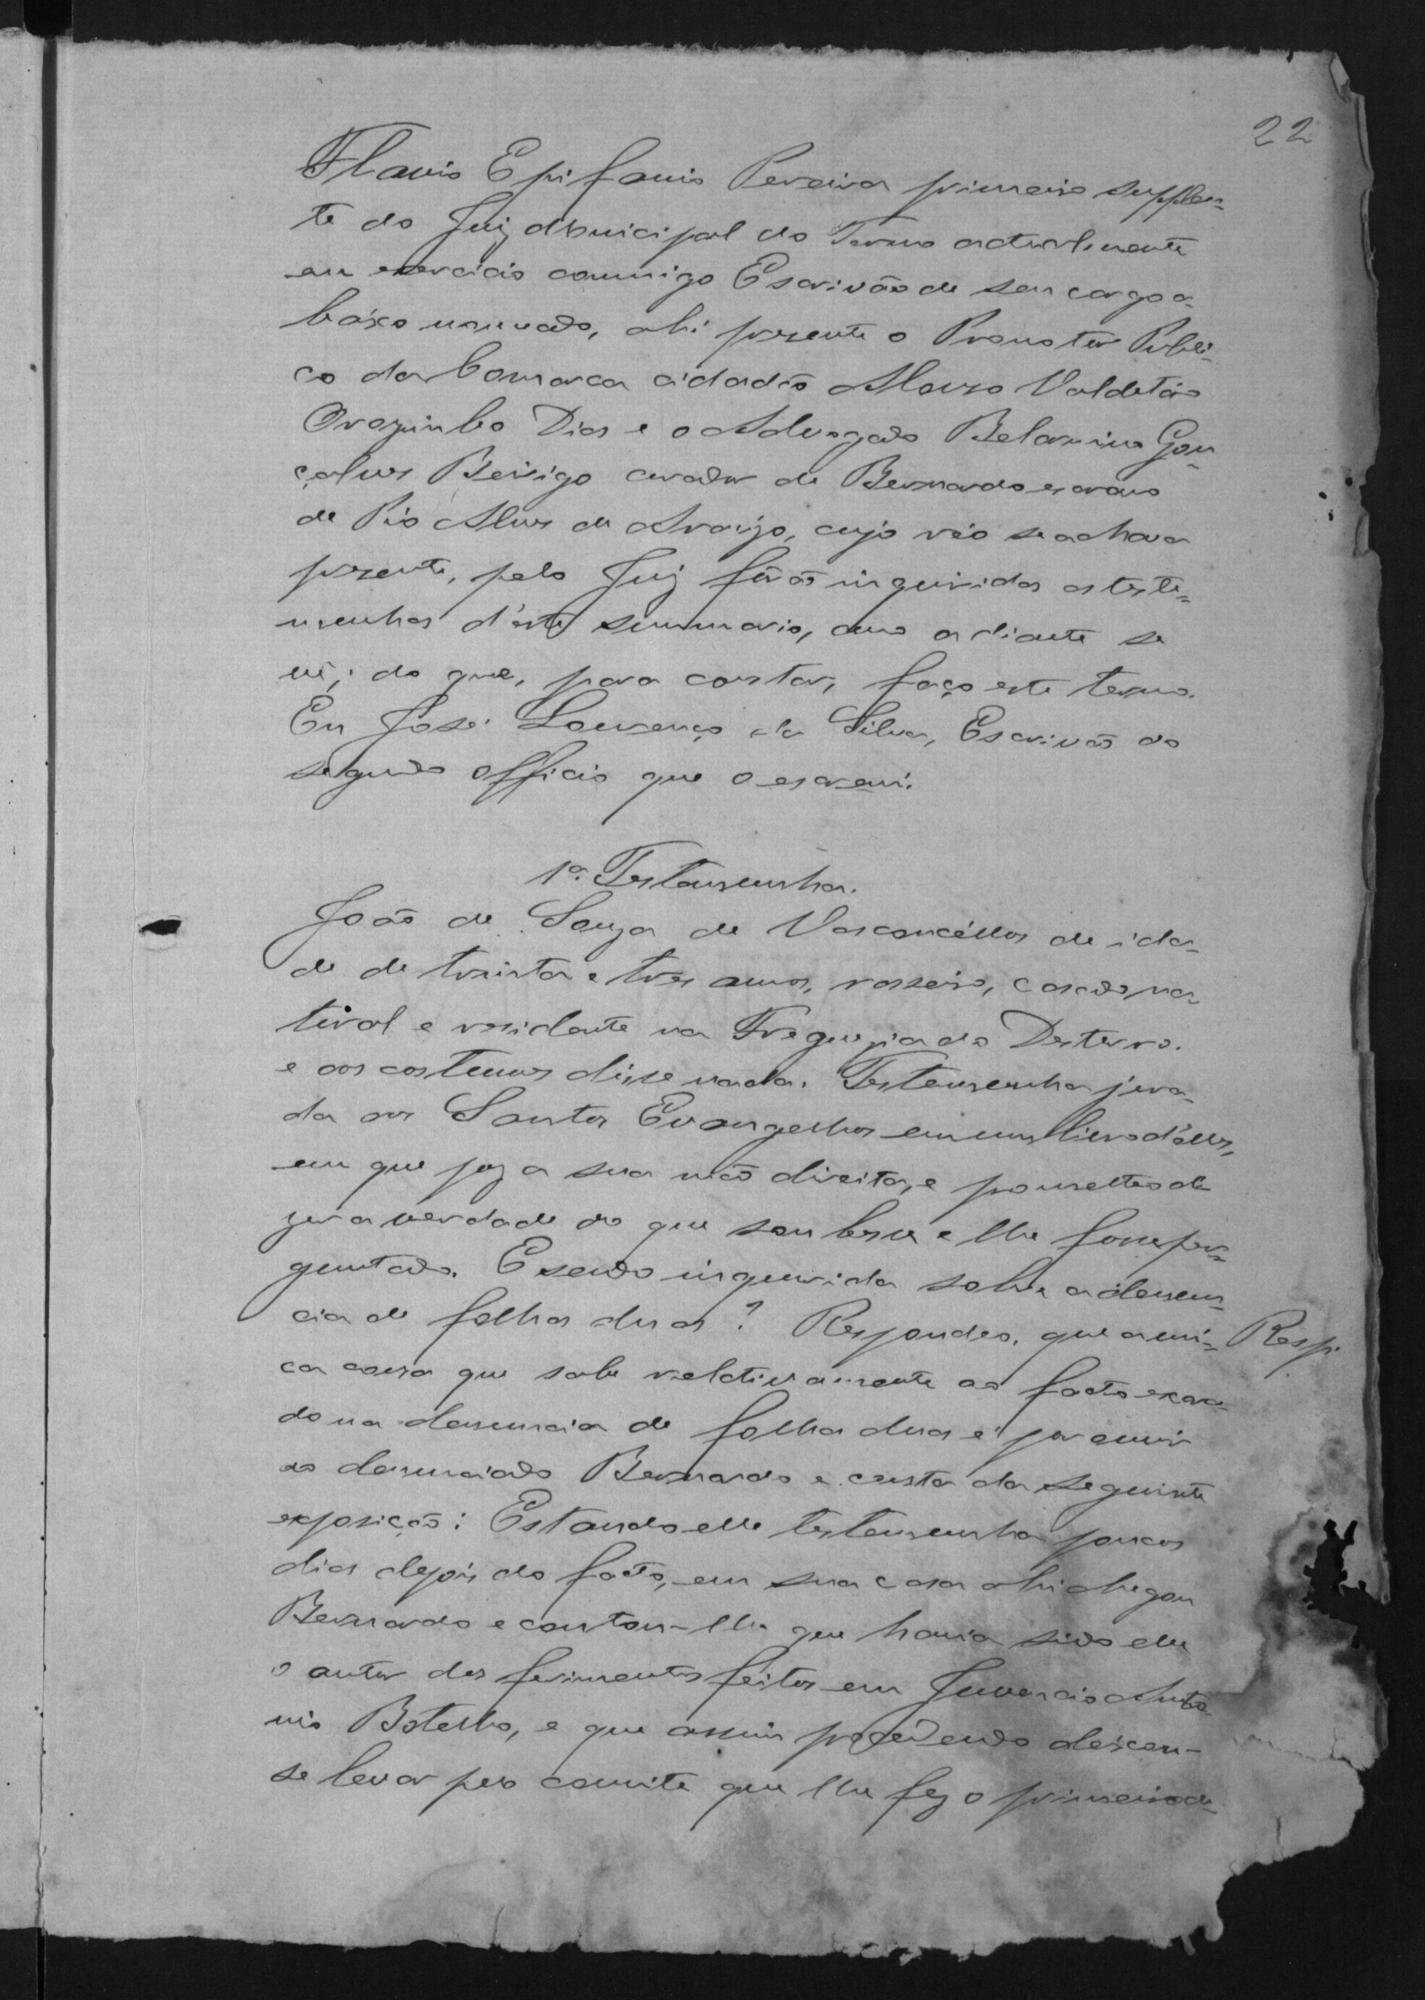 22
Flavio Epifanio Pereira primeiro supplen-
te do Juiz Municipal do Termo actualmente
em exercicio commigo Escrivão de seu cargo a-
baixo nomeado, ahi presente o Promotor Publi-
co da Comarca cidadão Alonso
Dias e o Advogado Belarmino Gon-
çalves curador de Bernardo escravo
de Pio Alves de Araujo, cujo réo se achava
presente, pelo Juiz forão inquiridas as teste-
munhas d'este summario, como adiante se
vê; do que, para constar, faço este termo.
Eu José Lourenço da Silva, Escrivão do
segundo officio que o escrevi.
1ª Testemunha.
João de Souza de Vasconcéllos de ida-
de de trinta e tres annos, roceiro, casado, na-
tural e residente na Freguezia do Desterro.
e aos costumes disse nada. Testemunha jura-
da aos Santos Evangelhos em um livro d'elles,
em que poz a sua mão direita, e prometteo di-
zer a verdade do que soubesse e lhe fosse per-
guntado. E sendo inquerida sobre a denun-
cia de folhas duas? Respondeo, que a uni-
Resp.
ca cousa que sabe relativamente ao facto exara-
do na denuncia de folhas duas é por ouvir
ao denunciado Bernardo e consta da seguinte
exposição: Estando elle testemunha poucos
dias depois do facto, em sua casa ahi chegou
Bernardo e contou-lhe que havia sido elle
o autor dos ferimentos feitos em Juvencio Anto-
nio Botelho, e que assim procedendo deixou-
se levar pelo convite que lhe fez o primeiro de-